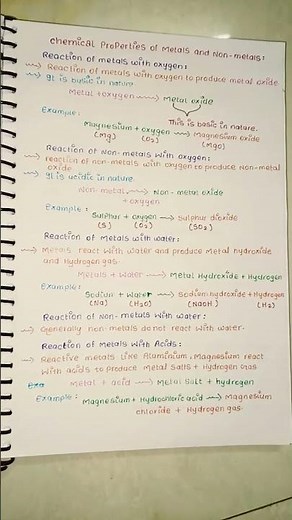 Chemical Properties of Metals and Non-metals:
Reaction of metals with oxygen:
Reaction of metals with oxygen to produce metal oxide
It is basic in nature.
Metal + oxygen → Metal oxide
This is basic in nature.
Example:
Magnesium + oxygen → Magnesium oxide
(Mg) (O₂) (MgO)
Reaction of Non-metals with oxygen:
reaction of non-metals with oxygen to produce Non-metal
oxide
It is acidic in nature.
Non-metal → Non-metal oxide
+ oxygen
Example:
Sulphur + oxygen → Sulphur dioxide
(S) (O₂) (SO₂)
Reaction of Metals with water:
Metals react with water and produce Metal hydroxide
and Hydrogen gas.
Metals + Water → Metal Hydroxide + Hydrogen
Example:
Sodium + Water → Sodium hydroxide + Hydrogen
(Na) (H₂O) (NaOH) (H₂)
Reaction of Non-metals with Water:
Generally non-metals do not react with water.
Reaction of Metals with Acids:
Reactive metals like Aluminium, Magnesium react
with acids to produce Metal Salts + Hydrogen Gas
Exa
Metal + acid → Metal Salt + hydrogen
Example:
Magnesium + Hydrochloric acid → Magnesium
chloride + Hydrogen gas